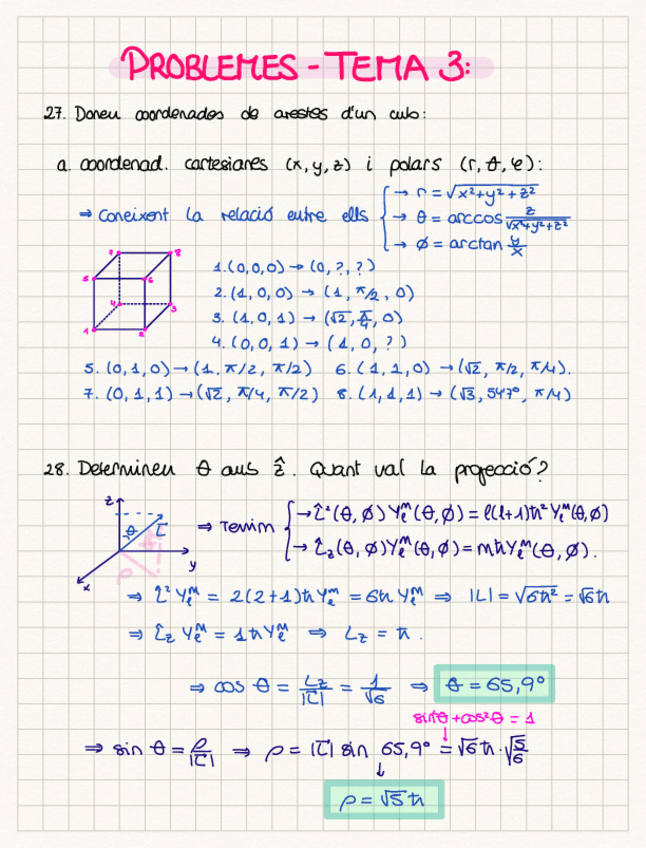 PROBLEMES - TEMA 3:
27. Doneu coordenades de arestes d'un cub:
a. coordenad. cartesianes (x, y, z) i polars (r, θ, φ):
→ r = √x²+y²+z²
⇒ Coneixent la relació entre ells → θ = arccos z/√x²+y²+z²
→ φ = arctan y/x
7 8
5 6
4 3
1 2
1. (0,0,0) → (0, ?, ?)
2. (1, 0, 0) → (1, π/2, 0)
3. (1, 0, 1) → (√2, π/4, 0)
4. (0, 0, 1) → (1, 0, ?)
5. (0, 1, 0) → (1, π/2, π/2) 6. (1, 1, 0) → (√2, π/2, π/4).
7. (0, 1, 1) → (√2, π/4, π/2) 8. (1, 1, 1) → (√3, 54'7°, π/4)
28. Determineu θ amb ẑ. Quant val la projecció?
z θ L y x ρ
⇒ Tenim → L̂²(θ, φ) Yₗᵐ(θ, φ) = l(l+1)ħ² Yₗᵐ(θ, φ)
→ L̂z(θ, φ) Yₗᵐ(θ, φ) = mħ Yₗᵐ(θ, φ).
⇒ L̂² Yₗᵐ = 2(2+1)ħ Yₗᵐ = 6ħ Yₗᵐ ⇒ |L| = √6ħ² = √6ħ
⇒ L̂z Yₗᵐ = 1ħ Yₗᵐ ⇒ Lz = ħ.
⇒ cos θ = Lz/|L| = 1/√6 ⇒ θ = 65,9°
sin²θ + cos²θ = 1
⇒ sin θ = ρ/|L| ⇒ ρ = |L| sin 65,9° = √6ħ · √5/6
ρ = √5ħ